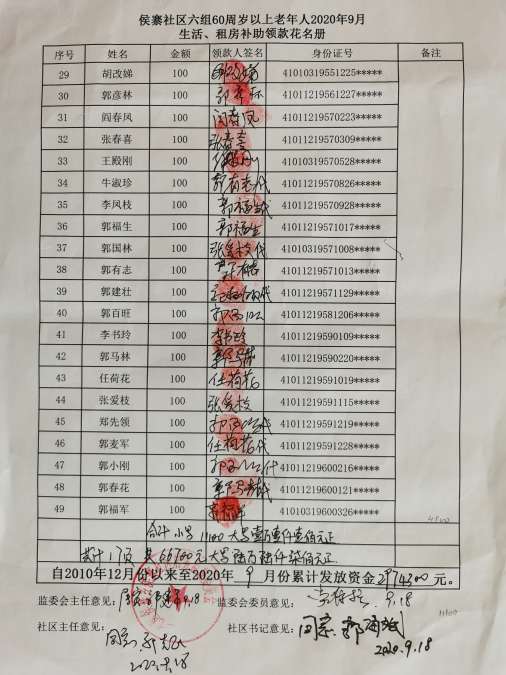 侯寨社区六组60周岁以上老年人2020年9月
生活、租房补助领款花名册
序号 姓名 金额 领款人签名 身份证号 备注
29 胡改娣 100 41010319551225*****
30 郭彦林 100 郭彦林 41011219561227*****
31 阎春凤 100 闫春凤 41011219570223*****
32 张春喜 100 张春喜 41011219570309*****
33 王殿刚 100 41010319570528*****
34 牛淑珍 100 郭有志代 41011219570826*****
35 李凤枝 100 郭福生代 41010519570928*****
36 郭福生 100 郭福生 41011219571017*****
37 郭国林 100 张爱枝代 41010319571008*****
38 郭有志 100 郭有志 41011219571013*****
39 郭建壮 100 41011219571129*****
40 郭百旺 100 41011219581206*****
41 李书玲 100 李书玲 41011219590109*****
42 郭马林 100 郭马林 41011219590220*****
43 任荷花 100 任荷花 41011219591019*****
44 张爱枝 100 张爱枝 41011219591115*****
45 郑先领 100 41011219591219*****
46 郭麦军 100 任荷花代 41011219591228*****
47 郭小刚 100 41011219600216*****
48 郭春花 100 郭马林代 41011219600121*****
49 郭福军 100 41010319600326*****
合计 小写 11100 大写 壹万壹仟壹佰元正
共计17页 共66700元 大写 陆万陆仟柒佰元正
自2010年12月份以来至2020年9月份累计发放资金2974300元。
监委会主任意见: 9.18 监委会委员意见: 9.18
社区主任意见: 同意 社区书记意见: 同意
2020.9.18 2020.9.18